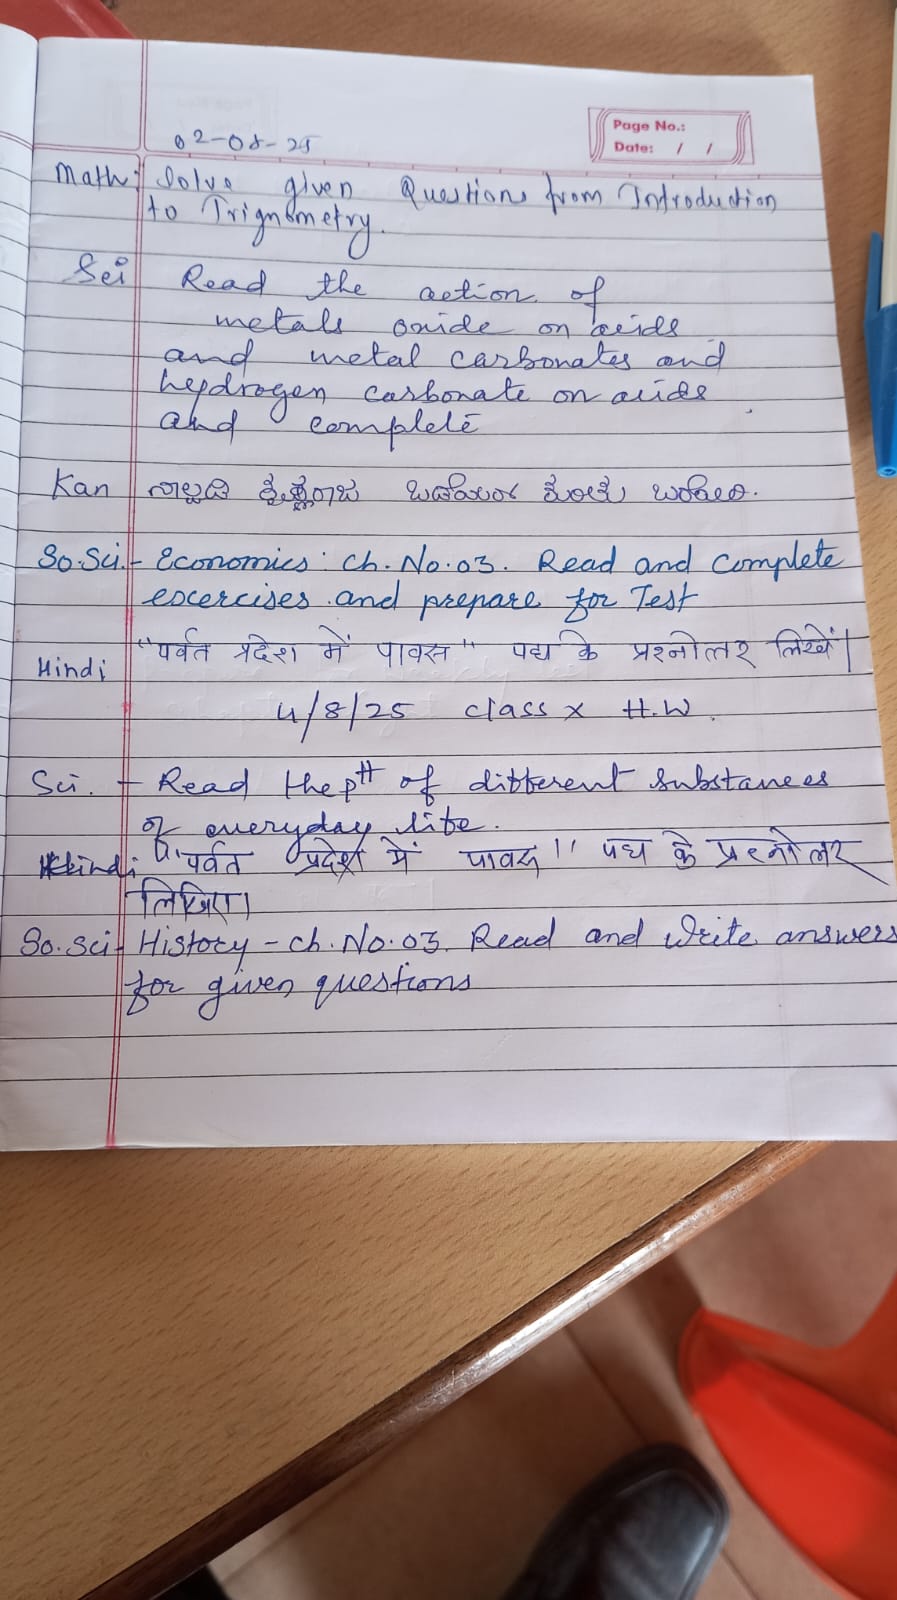 Page No.:
Date: / /
02-08-25
Math: Solve given Questions from Introduction
to Trignometry.
Sci Read the action of
metals oxide on acids
and metal carbonates and
hydrogen carbonate on acids
and complete
Kan
So.Sci.- Economics: Ch.No.03. Read and Complete
excercises and prepare for Test
"पर्वत प्रदेश में पावस" पद्य के प्रश्नोत्तर लिखें।
Hindi
4/8/25 class x H.W.
Sci. - Read the pH of different substances
of everyday life.
Hindi "पर्वत प्रदेश में पावस" पद्य के प्रश्नोत्तर
लिखिए।
So.Sci- History - Ch.No.03. Read and Write answers
for given questions